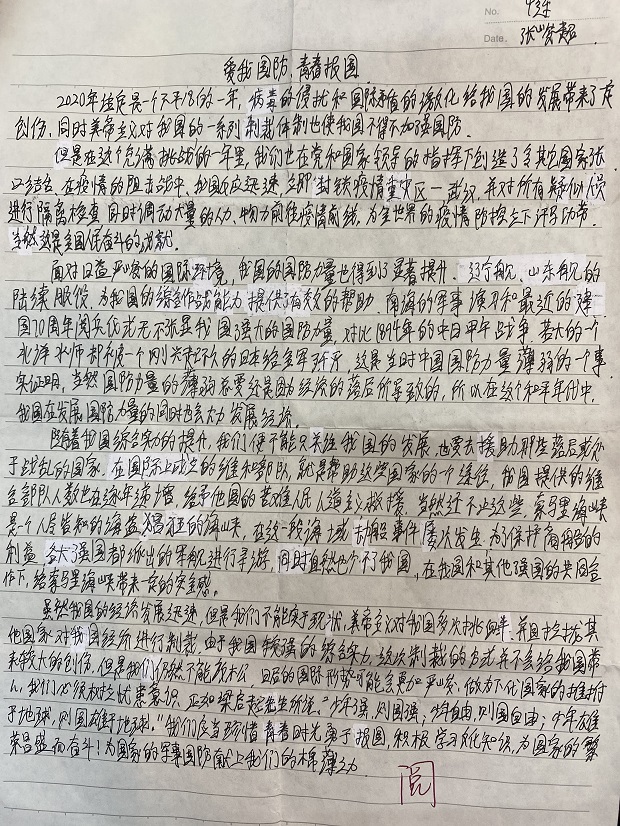 No.
Date.
爱我国防,青春报国
2020年注定是一个不平凡的一年,病毒的侵扰和国际矛盾的激化给我国的发展带来了
创伤,同时美帝主义对我国的一系列制裁体制也使我国不得不加强国防。
但是在这个充满挑战的一年里,我们也在党和国家领导的指挥下创造了令其它国家张
口结舌,在疫情的阻击战中,我国反应迅速,立即封锁疫情重灾区—武汉,并对所有疑似人员
进行隔离检查,同时调动大量的人力、物力前往疫情前线,为全世界的疫情防控立下汗马功劳。
当然这是全国人民奋斗的成就。
面对日益严峻的国际环境,我国的国防力量也得到了显著提升。辽宁舰、山东舰的
陆续服役,为我国的综合作战能力提供了有效的帮助。南海的军事演习和最近的建
国70周年阅兵仪式无不张显我国强大的国防力量,对比1894年的中日甲午战争,若大的一个
北洋水师却被一个刚兴起不久的日本给全军歼灭,这是当时中国国防力量薄弱的一个事
实证明,当然国防力量的薄弱总要还是因为经济的落后所导致的,所以在这个和平年代中,
我国在发展国防力量的同时也会大力发展经济。
随着我国综合实力的提升,我们便不能只关注我国的发展,也要去援助那些落后或处
于战乱的国家。在国际上成立的维和部队,就是帮助这些国家的一个途径,我国提供的维
和部队人数也在逐年递增,给予他国的苦难人民人道主义救援。当然还不止这些,索马里海峡
是一个人尽皆知的海盗猖狂的海峡,在这一段海域劫船事件屡次发生,为了保护商船的
利益,各大强国都派出的军舰进行寻游,同时自然也少不了我国,在我国和其他强国的共同合
作下,给索马里海峡带来一定的安全感。
虽然我国的经济发展迅速,但是我们不能安于现状,美帝主义对我国多次挑衅,并且拉拢其
他国家对我国经济进行制裁,由于我国较强的综合实力,这次制裁的方式并不会给我国带
来较大的创伤,但是我们仍然不能放松,日后的国际形势可能会更加严峻,做为下代国家的维护
人,我们必须树立忧患意识,正如梁启超先生所讲:“少年强,则国强;少年自由,则国自由;少年雄
于地球,则国雄于地球。”我们应当珍惜青春时光,勇于报国,积极学习文化知识,为国家的繁
荣昌盛而奋斗!为国家的军事国防献上我们的棉薄之力。
阅